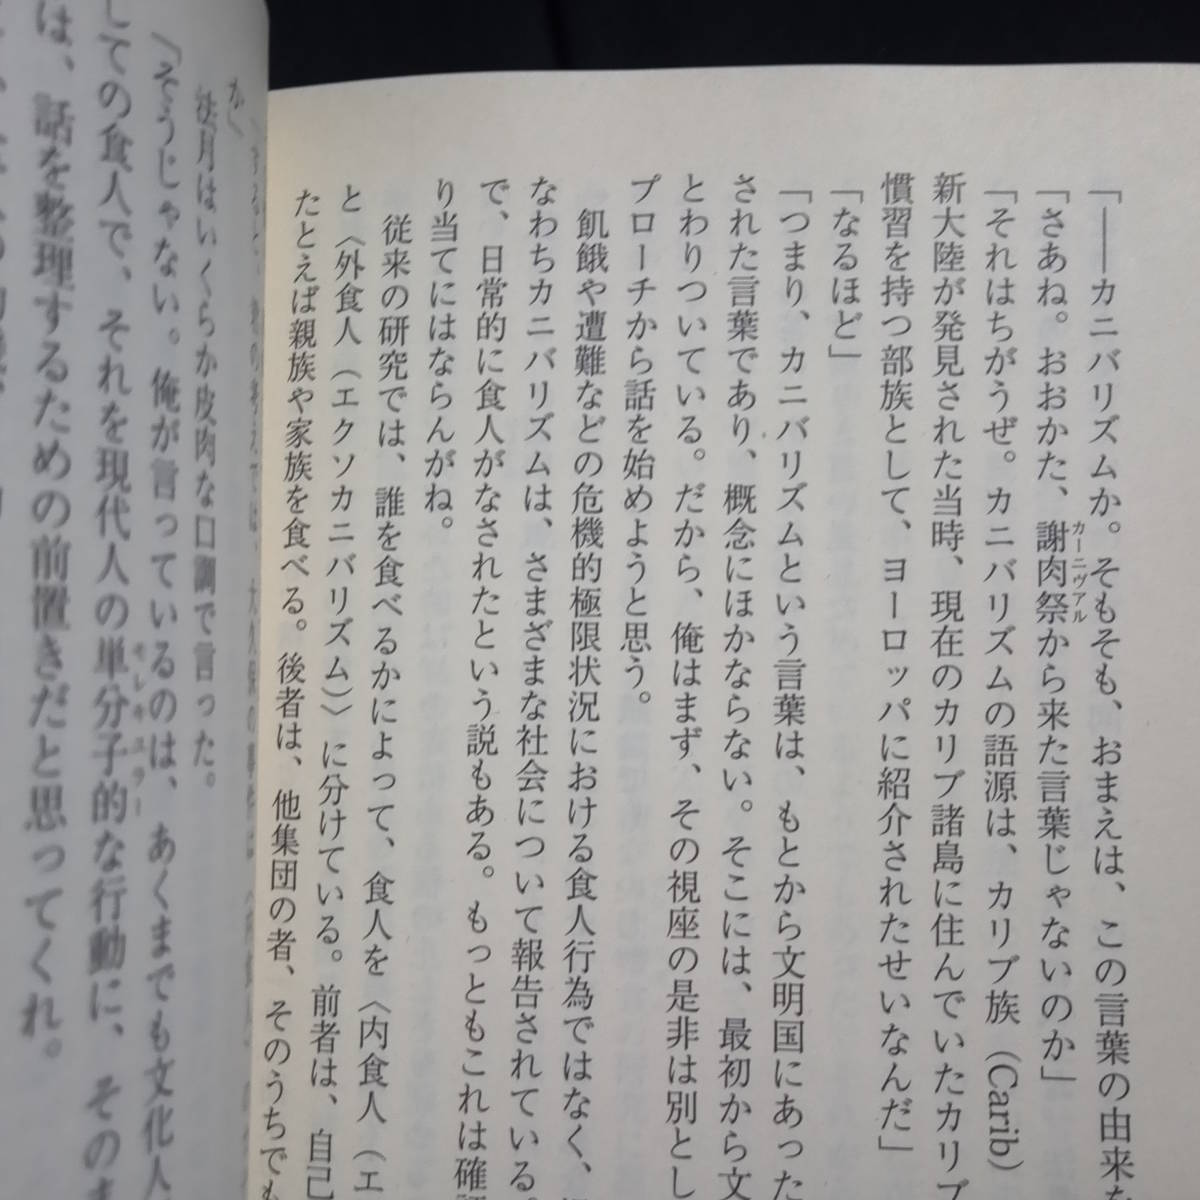 「――カニバリズムか。そもそも、おまえは、この言葉の由来を
「さあね。おおかた、謝肉祭から来た言葉じゃないのか」
カーニヴアル
「それはちがうぜ。カニバリズムの語源は、カリブ族（Carib）
新大陸が発見された当時、現在のカリブ諸島に住んでいたカリブ
慣習を持つ部族として、ヨーロッパに紹介されたせいなんだ」
「なるほど」
「つまり、カニバリズムという言葉は、もとから文明国にあった
された言葉であり、概念にほかならない。そこには、最初から文
とわりついている。だから、俺はまず、その視座の是非は別とし
プローチから話を始めようと思う。
飢餓や遭難などの危機的極限状況における食人行為ではなく、
なわちカニバリズムは、さまざまな社会について報告されている。
で、日常的に食人がなされたという説もある。もっともこれは確
り当てにはならんがね。
従来の研究では、誰を食べるかによって、食人を〈内食人（エ
と〈外食人（エクソカニバリズム）〉に分けている。前者は、自己
たとえば親族や家族を食べる。後者は、他集団の者、そのうちでも
か〉
法月はいくらか皮肉な口調で言った。
〉そうじゃない。俺が言っているのは、あくまでも文化人
しての食人で、それを現代人の単分子的な行動に、そのま
モレキュラー
は、話を整理するための前置きだと思ってくれ。